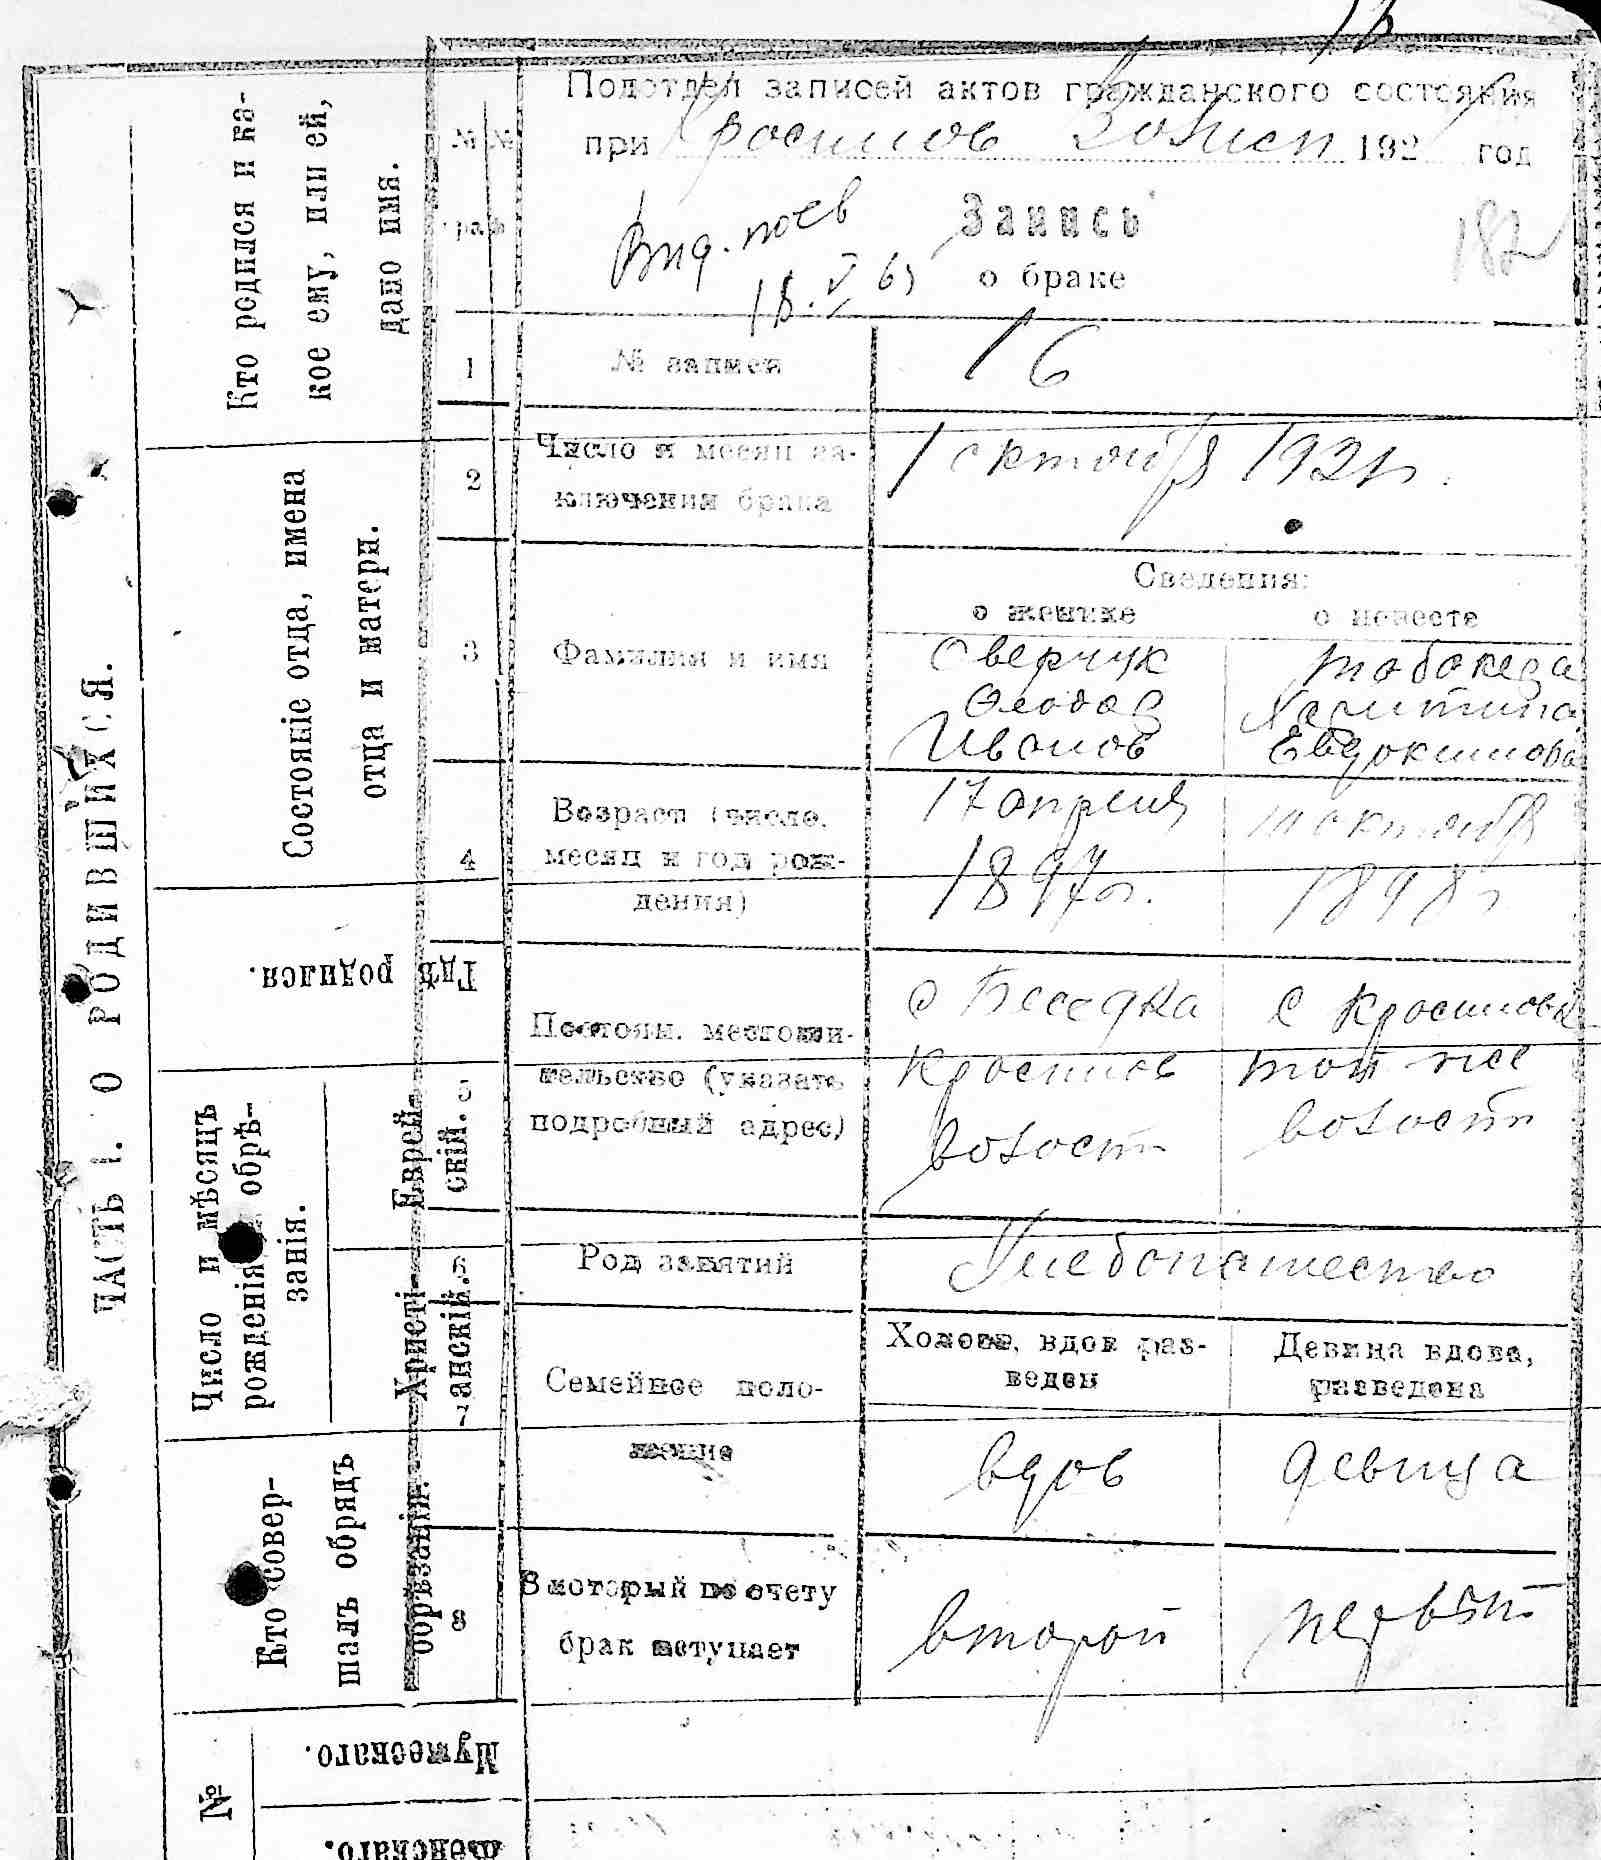 Подотдел записей актов гражданского состояния
при Красилов Волисп 192 год
Запись
о браке
18. V 65
182
№ записи
16
Число и месяц за-
ключения брака
1 октября 1921 г.
Сведения:
о женихе
о невесте
Фамилия и имя
Сверчук
Феодор
Иванов
Харитина
Евдокимова
Возраст (число,
месяц и год рож-
дения)
17 апреля
1897 г.
октября
1898 г
Постоян. местожи-
тельство (указать
подробный адрес)
с Беседка
Красилов
волости
с Красиловка
той же
волости
Род занятий
Хлебопашество
Семейное поло-
жение
Холост, вдов раз-
веден
Девица вдова,
разведена
вдов
девица
В который по счету
брак вступает
второй
первый
1
2
3
4
8
№№
граф
ЧАСТЬ I. О РОДИВШИХСЯ.
Кто родился и ка-
кое ему, или ей,
дано имя.
Состояніе отца, имена
отца и матери.
Гдѣ родился.
Число и мѣсяцъ
рожденія и обрѣ-
занія.
Еврей-
скій.
Христі-
анскій.
Кто совер-
шалъ обрядъ
обрѣзанія.
№
Мужескаго.
Женскаго.